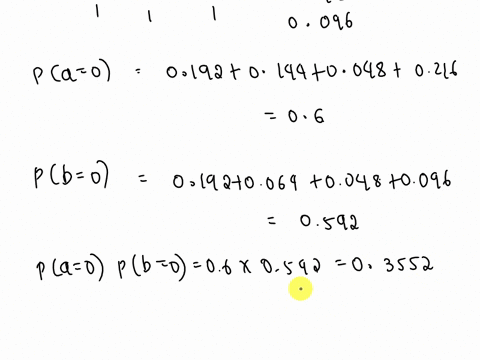 1 1 1
0.096
P(a=0) = 0.192+0.144+0.048+0.216
= 0.6
P(b=0) = 0.192+0.069+0.048+0.096
= 0.592
P(a=0) P(b=0) = 0.6 × 0.592 = 0.3552